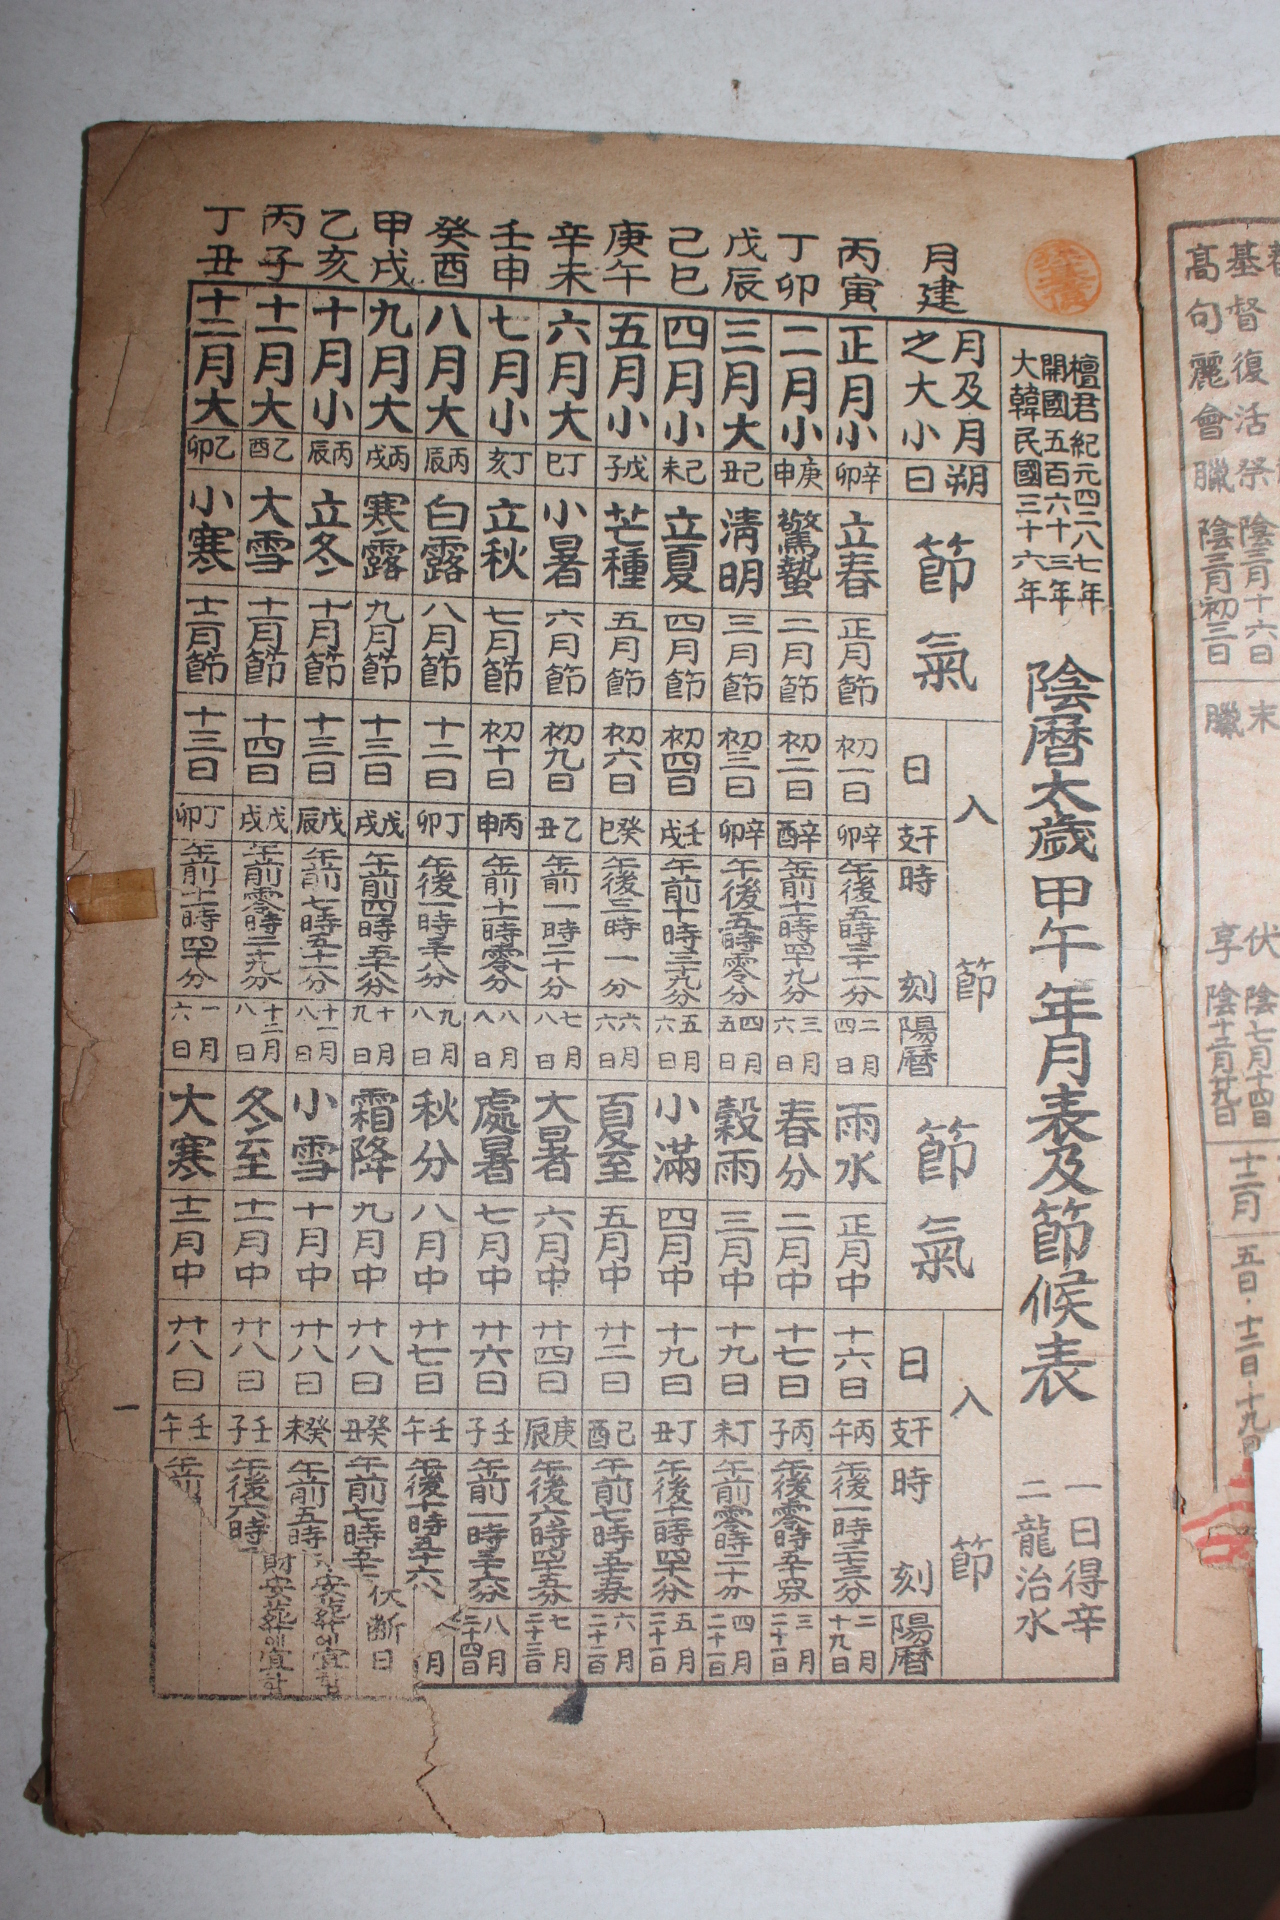 基督復活祭
陰三月十六日
末伏
陰七月十四日
高句麗會臘
陰三月初三日
臘享
陰十二月廿九日
十二月
五日·十二日·十九日
檀君紀元四二八七年
開國五百六十三年
大韓民國三十六年
陰曆太歲甲午年月表及節候表
一日得辛
二龍治水
月建 月及月之大小 朔日 節氣 入節 日 干支 時刻 陽曆 節氣 入節 日 干支 時刻 陽曆
丙寅 正月小 辛卯 立春 正月節 初一日 辛卯 午後五時三十一分 二月四日 雨水 正月中 十六日 丙午 午後一時三十三分 二月十九日
丁卯 二月小 庚申 驚蟄 二月節 初二日 辛酉 午前十一時四十九分 三月六日 春分 二月中 十七日 丙子 午後零時五十四分 三月二十一日
戊辰 三月大 己丑 清明 三月節 初三日 辛卯 午後五時零分 四月五日 穀雨 三月中 十九日 丁未 午前零時二十分 四月二十一日
己巳 四月小 己未 立夏 四月節 初四日 壬戌 午前十時三十九分 五月六日 小滿 四月中 十九日 丁丑 午後十一時四十八分 五月二十一日
庚午 五月小 戊子 芒種 五月節 初六日 癸巳 午後三時一分 六月六日 夏至 五月中 廿二日 己酉 午前七時五十五分 六月二十二日
辛未 六月大 丁巳 小暑 六月節 初九日 乙丑 午前一時二十分 七月八日 大暑 六月中 廿四日 庚辰 午後六時四十五分 七月二十三日
壬申 七月小 丁亥 立秋 七月節 初十日 丙申 午前十一時零分 八月八日 處暑 七月中 廿六日 壬子 午前一時三十六分 八月二十四日
癸酉 八月大 丙辰 白露 八月節 十二日 丁卯 午後一時三十八分 九月八日 秋分 八月中 廿七日 壬午 午後十時五十六 月
甲戌 九月大 丙戌 寒露 九月節 十三日 戊戌 午前四時五十八分 十月九日 霜降 九月中 廿八日 癸丑 午前七時五十
乙亥 十月小 丙辰 立冬 十月節 十三日 戊辰 午前七時五十一分 十一月八日 小雪 十月中 廿八日 癸未 午前五時
丙子 十一月大 乙酉 大雪 十一月節 十四日 戊戌 午前零時二十九分 十二月八日 冬至 十一月中 廿八日 壬子 午後六時
丁丑 十二月大 乙卯 小寒 十二月節 十三日 丁卯 午前十一時四十分 一月六日 大寒 十二月中 廿八日 壬午 午前
伏斷日
安葬에宜함
財安葬에宜함
一